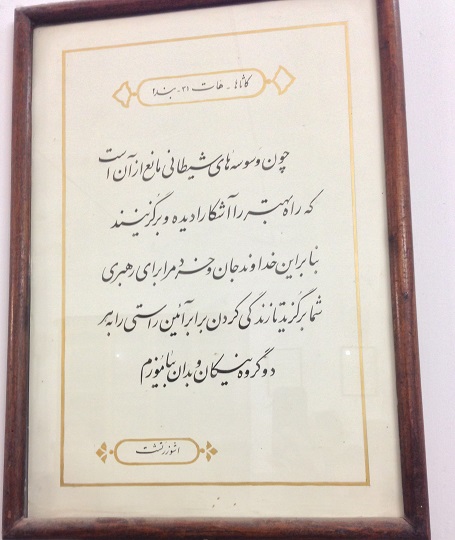 گاتاها - هات ۳۱ - بند ۲
چون وسوسه‌های شیطانی مانع از آن است
که راه بهتر را آشکارا دیده و برگزینند
بنابراین خداوند جان و خرد مرا برای رهبری
شما برگزید تا زندگی کردن برابر آئین راستی را به هر
دو گروه نیکان و بدان بیاموزم
اشوزرتشت